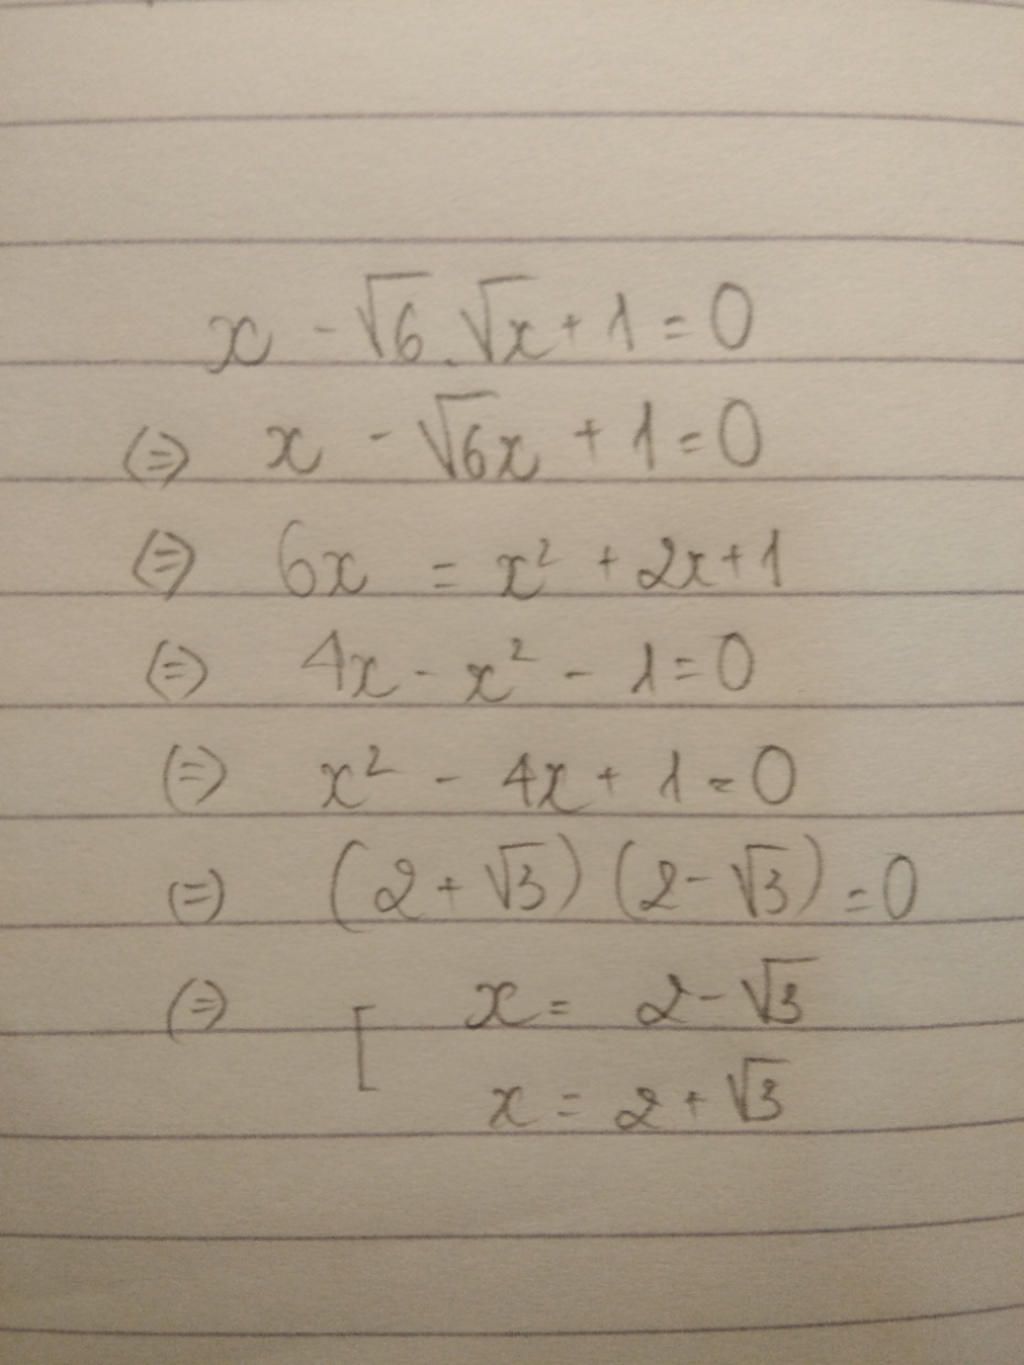 x - √6.√x + 1 = 0
(=) x - √6x + 1 = 0
(=) 6x = x² + 2x + 1
(=) 4x - x² - 1 = 0
(=) x² - 4x + 1 = 0
(=) (2 + √3) (2 - √3) = 0
(=) [ x = 2 - √3
x = 2 + √3